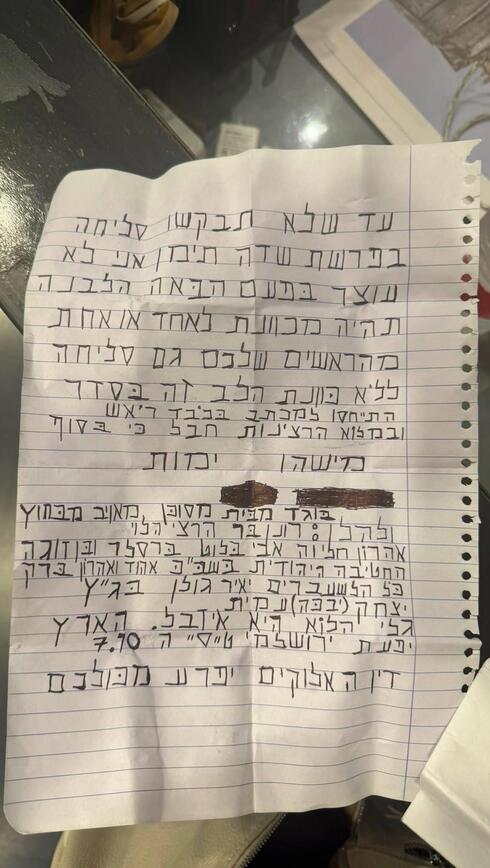 עד שלא תבקשו סליחה
בפרשת שדה תימן אני לא
עוצר בפעם הבאה הלבנה
תהיה מכוונת לאחד או אחת
מהראשים שלכם גם סליחה
ללא כוונת הלב זה בסדר
התייחסו למכתב בכובד ראש
ובמלוא הרצינות חבל כי בסוף
מישהו ימות
בוגד מבית מסוכן מאויב מבחוץ
ולהלן: רונן בר הרצי הלוי
אהרון חליוה אבי בלוט ברסלר ובן זוגה
החטיבה היהודית בשב״כ אהוד ואהרון ברק
כל הלשעברים יאיר גולן בג״ץ
יצחק (יבבה) עמית
גלי הלוא היא איזבל. הארץ
יפעת ירושלמי ט״ס״ ה 7.10
דין האלוקים יפרע מכולכם